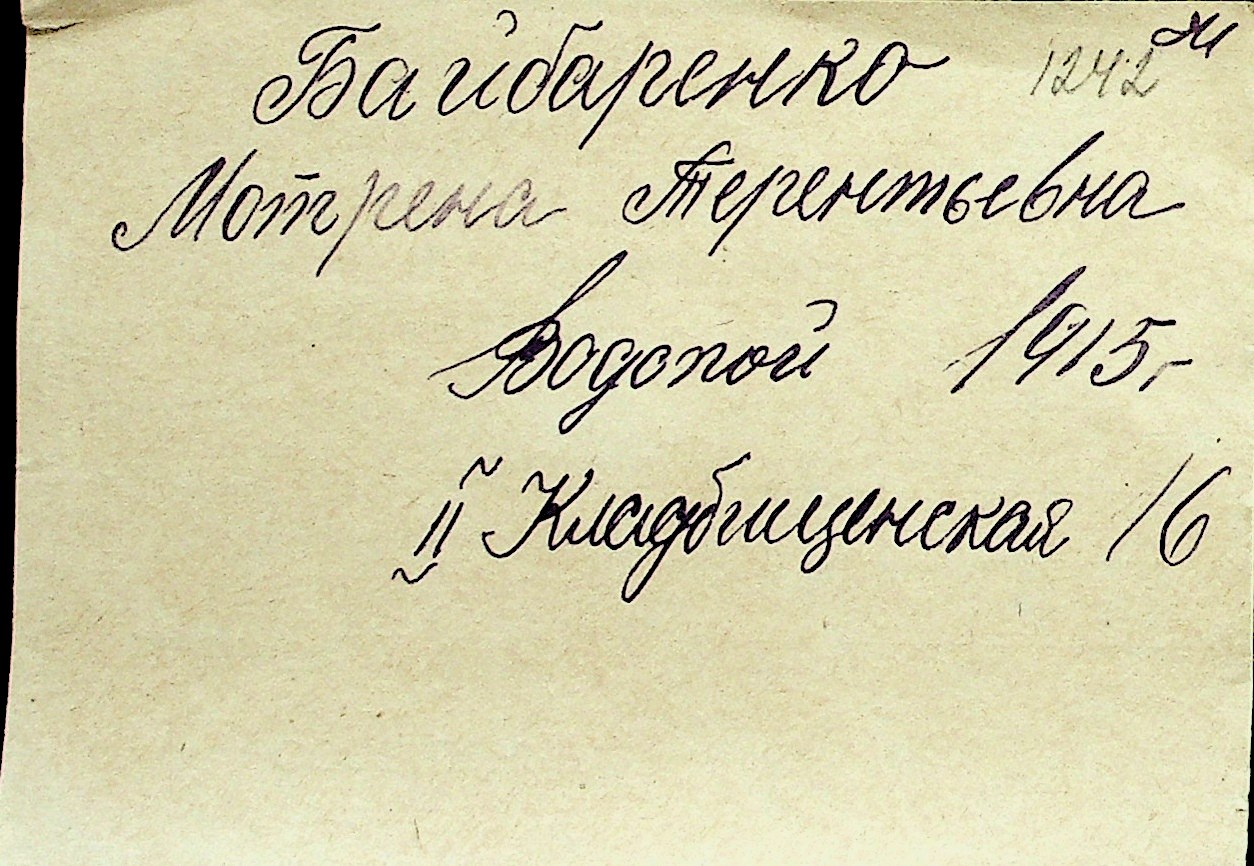 Байбаренко 1242 м
Мотрена Терентьевна
Водопой 1915 г
II Кладбищенская 16